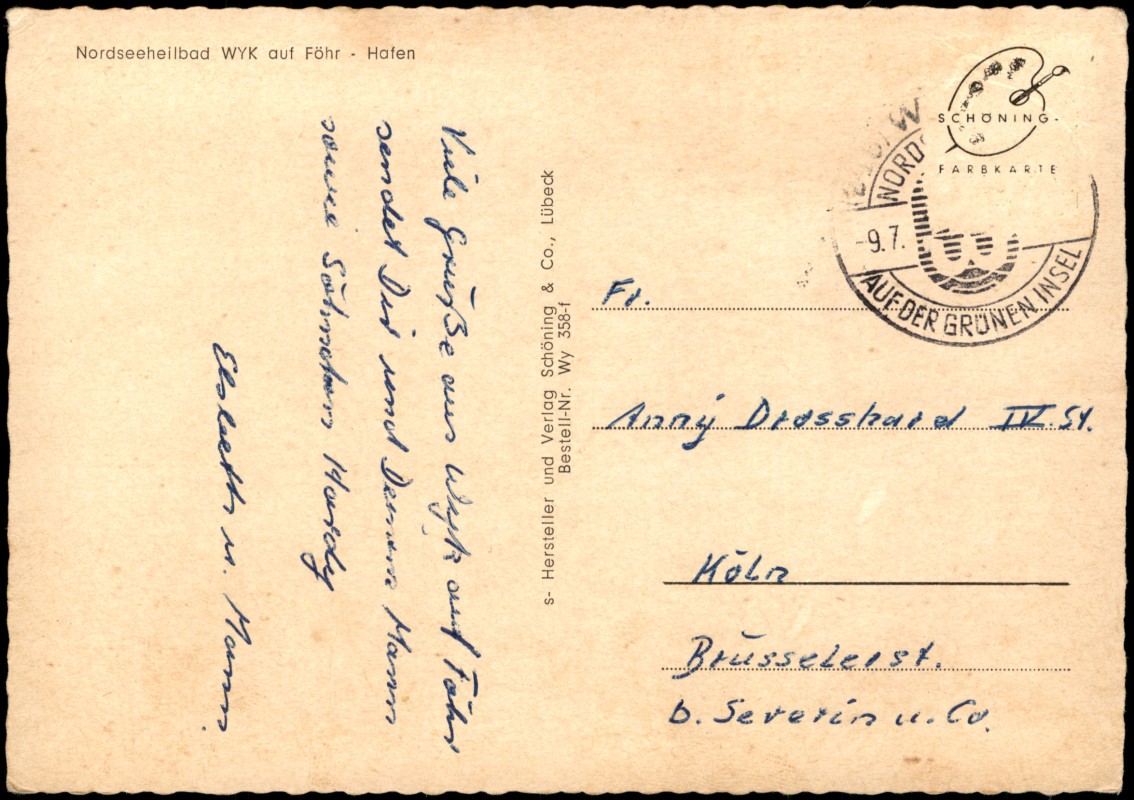 Nordseeheilbad WYK auf Föhr - Hafen
Viele Grüße aus Wyk auf Föhr
sendet Dir und Deinem Mann
sowie Söhnchen Hardy
Elsbeth u. Mann.
s- Hersteller und Verlag Schöning & Co., Lübeck
Bestell-Nr. Wy 358-f
SCHÖNING-
FARBKARTE
NORDS
-9.7.
AUF DER GRÜNEN INSEL
Fr.
Anny Drosshard IV. St.
Köln
Brüsselerst.
b. Severin u. Co.